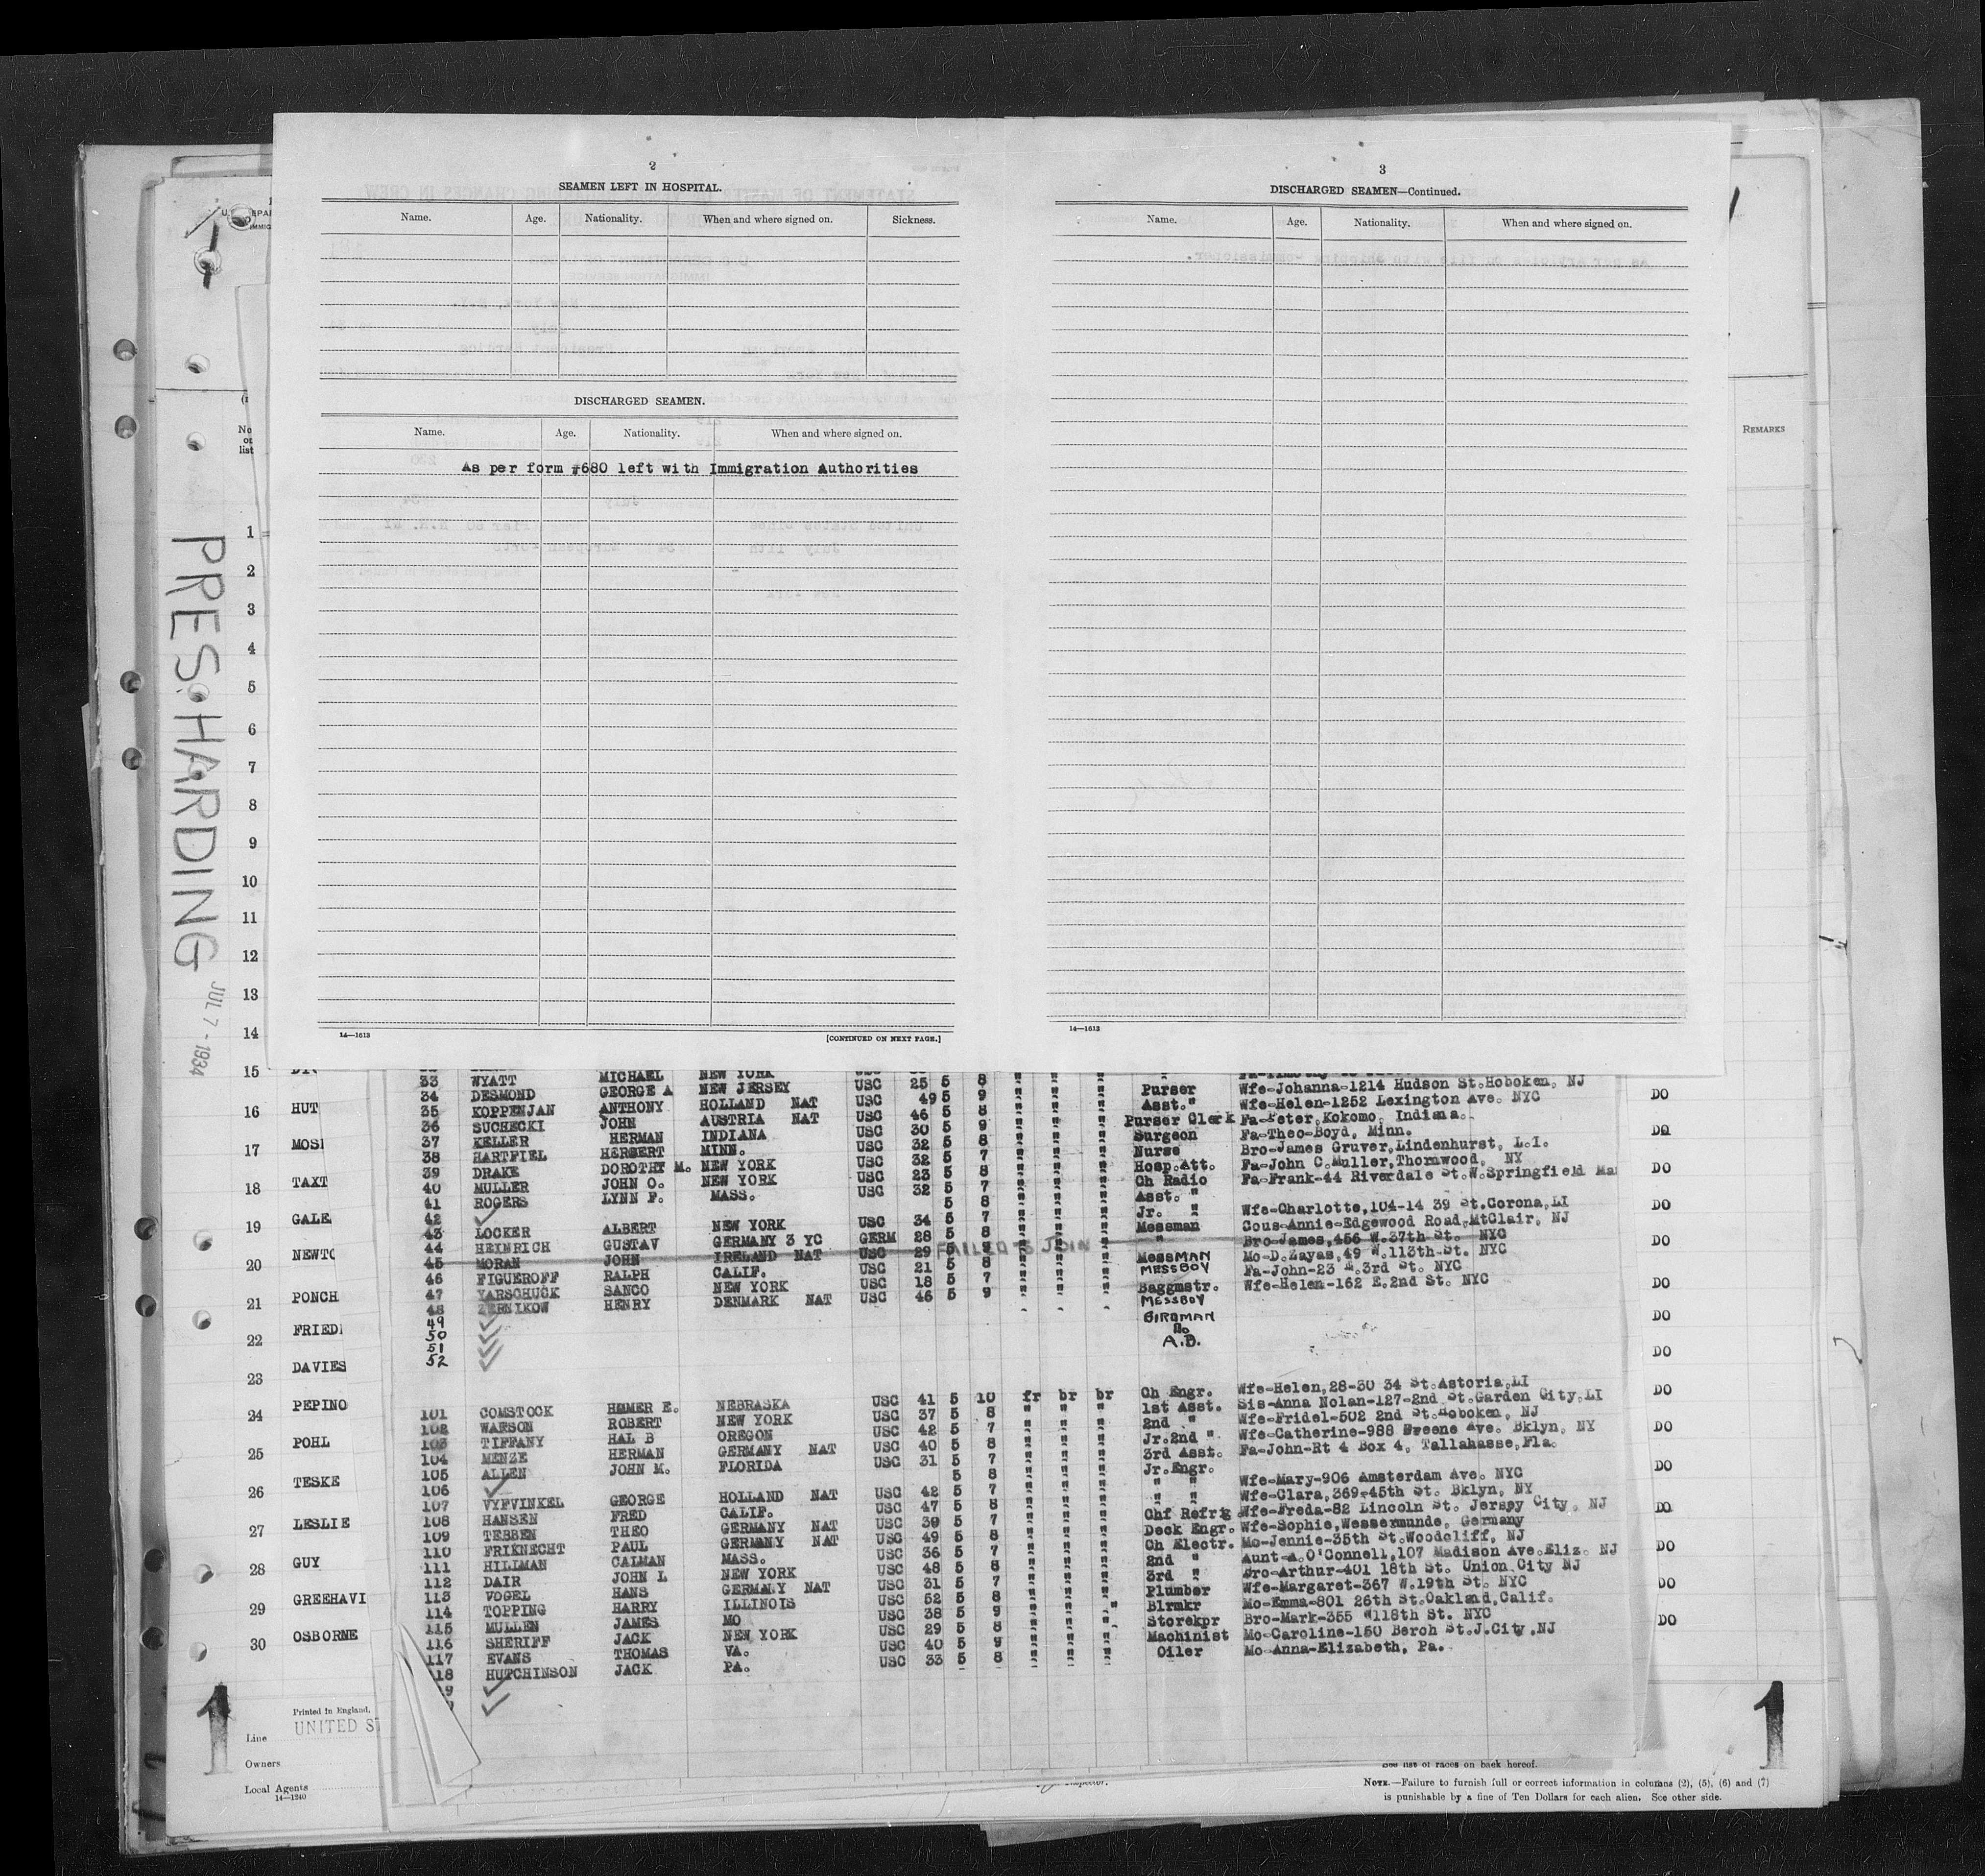 2
SEAMEN LEFT IN HOSPITAL.
Name. Age. Nationality. When and where signed on. Sickness.
DISCHARGED SEAMEN.
Name. Age. Nationality. When and where signed on.
As per form #680 left with Immigration Authorities
14—1613 [CONTINUED ON NEXT PAGE.]
3
DISCHARGED SEAMEN—Continued.
Name. Age. Nationality. When and where signed on.
14—1613
PRES. HARDING JUL 7 - 1934
No
on
list
REMARKS
1
2
3
4
5
6
7
8
9
10
11
12
13
14
15
16 HUT DO
17 MOSI DO
18 TAXT DO
19 GALE DO
20 NEWTC DO
21 PONCH DO
22 FRIED DO
23 DAVIES DO
24 PEPINO DO
25 POHL DO
26 TESKE DO
27 LESLIE DO
28 GUY DO
29 GREEHAVI DO
30 OSBORNE DO
33 WYATT MICHAEL NEW YORK
34 DESMOND GEORGE A NEW JERSEY USC 25 5 8 " " " Purser Wfe-Johanna-1214 Hudson St.Hoboken, NJ
35 KOPPENJAN ANTHONY HOLLAND NAT USC 49 5 9 " " " Asst." Wfe-Helen-1252 Lexington Ave. NYC
36 SUCHECKI JOHN AUSTRIA NAT USC 46 5 8 " " " Purser Clerk Fa-Peter,Kokomo, Indiana.
37 KELLER HERMAN INDIANA USC 30 5 9 " " " Surgeon Fa-Theo-Boyd, Minn.
38 HARTFIEL HERBERT MINN. USC 32 5 8 " " " Nurse Bro-James Gruver,Lindenhurst, L.I.
39 DRAKE DOROTHY M. NEW YORK USC 32 5 7 " " " Hosp.Att. Fa-John C.Muller,Thornwood, NY
40 MULLER JOHN O. NEW YORK USC 23 5 8 " " " Ch Radio Fa-Frank-44 Riverdale St.W.Springfield Mas
41 ROGERS LYNN F. MASS. USC 32 5 7 " " " Asst. "
42 5 8 " " " Jr. " Wfe-Charlotte,104-14 39 St.Corona,LI
43 LOCKER ALBERT NEW YORK USC 34 5 7 " " " Messman Cous-Annie-Edgewood Road,MtClair, NJ
44 HEINRICH GUSTAV GERMANY 3 YC GERM 28 5 8 " " " " Bro-James,456 W.37th St. NYC
45 MORAN JOHN IRELAND NAT USC 29 5 FAILED TO JOIN MessMAN Mo-D.Zayas,49 W.113th St. NYC
46 FIGUEROFF RALPH CALIF. USC 21 5 8 " " " MESSBOY Fa-John-23 E.3rd St. NYC
47 YARSCHUCK SANCO NEW YORK USC 18 5 7 " " " Baggmstr. Wfe-Helen-162 E.2nd St. NYC
48 ZERNIKOW HENRY DENMARK NAT USC 46 5 9 " " " MESSBOY
49 GIRDMAN
50 Do
51 A.B.
52
101 COMSTOCK HOMER E. NEBRASKA USC 41 5 10 fr br br Ch Engr. Wfe-Helen,28-30 34 St.Astoria,LI
102 WARSON ROBERT NEW YORK USC 37 5 8 " " " 1st Asst. Sis-Anna Nolan-127-2nd St.Garden City,LI
103 TIFFANY HAL B OREGON USC 42 5 7 " " " 2nd " Wfe-Fridel-502 2nd St.Hoboken, NJ
104 MENZE HERMAN GERMANY NAT USC 40 5 8 " " " Jr.2nd " Wfe-Catherine-988 Greene Ave. Bklyn, NY
105 ALLEN JOHN M. FLORIDA USC 31 5 7 " " " 3rd Asst. Fa-John-Rt 4 Box 4, Tallahasse,Fla.
106 5 8 " " " Jr.Engr.
107 VYFVINKEL GEORGE HOLLAND NAT USC 42 5 7 " " " " " Wfe-Mary-906 Amsterdam Ave. NYC
108 HANSEN FRED CALIF. USC 47 5 8 " " " " " Wfe-Clara,369-45th St. Bklyn, NY
109 TEBBEN THEO GERMANY NAT USC 39 5 7 " " " Chf Refrig Wfe-Freda-82 Lincoln St. Jersey City, NJ
110 FRIKNECHT PAUL GERMANY NAT USC 49 5 8 " " " Deck Engr. Wfe-Sophie,Wessermunde, Germany
111 HILLMAN CALMAN MASS. USC 36 5 7 " " " Ch Electr. Mo-Jennie-35th St.Woodcliff, NJ
112 DAIR JOHN L NEW YORK USC 48 5 8 " " " 2nd " Aunt-A.O'Connell,107 Madison Ave.Eliz. NJ
113 VOGEL HANS GERMANY NAT USC 31 5 7 " " " 3rd " Bro-Arthur-401 18th St. Union City NJ
114 TOPPING HARRY ILLINOIS USC 52 5 8 " " " Plumber Wfe-Margaret-367 W.19th St. NYC
115 MULLEN JAMES MO USC 38 5 9 " " " Blrmkr Mo-Emma-801 26th St.Oakland,Calif.
116 SHERIFF JACK NEW YORK USC 29 5 8 " " " Storekpr Bro-Mark-355 W118th St. NYC
117 EVANS THOMAS VA. USC 40 5 9 " " " Machinist Mo-Caroline-150 Berch St.J.City,NJ
118 HUTCHINSON JACK PA. USC 33 5 8 " " " Oiler Mo-Anna-Elizabeth, Pa.
1 1
Printed in England.
UNITED ST
Line
Owners
Local Agents
14—1240
See list of races on back hereof.
NOTE.—Failure to furnish full or correct information in columns (2), (5), (6) and (7)
is punishable by a fine of Ten Dollars for each alien. See other side.